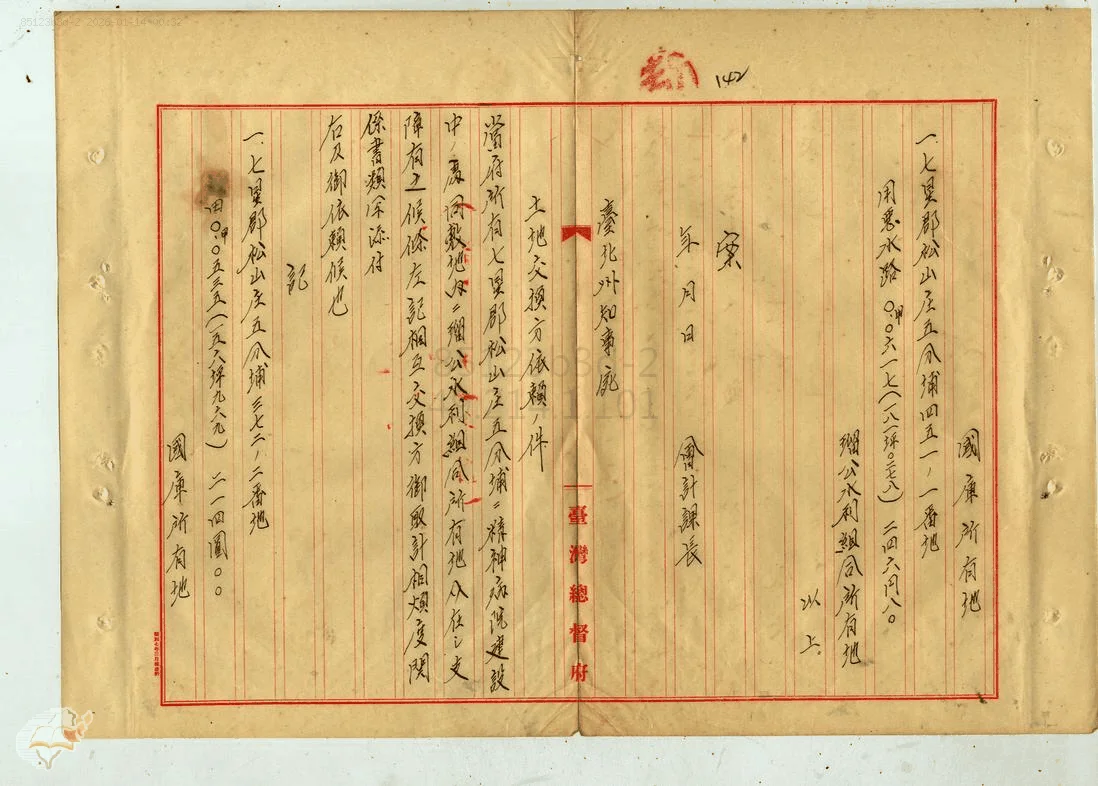 142
國庫所有地
一、七星郡松山庄五分埔四五一ノ一番地
用悪水路 〇甲〇六一七(一八一坪〇二七八) 二四六円八〇
瑠公水利組合所有地
以上。
案
年 月 日
會計課長
臺北州知事宛
土地交換方依賴ノ件
當府所有七星郡松山庄五分埔ニ精神病院建設
中ノ處同敷地內ニ瑠公水利組合所有地介在シ支
障有之候條左記相互交換方御取計相煩度関
係書類添付
右及御依賴候也
記
一、七星郡松山庄五分埔三七二ノ二番地
田〇甲〇五三五(一五六坪九六九) 二一四圓〇〇
國庫所有地
臺灣總督府